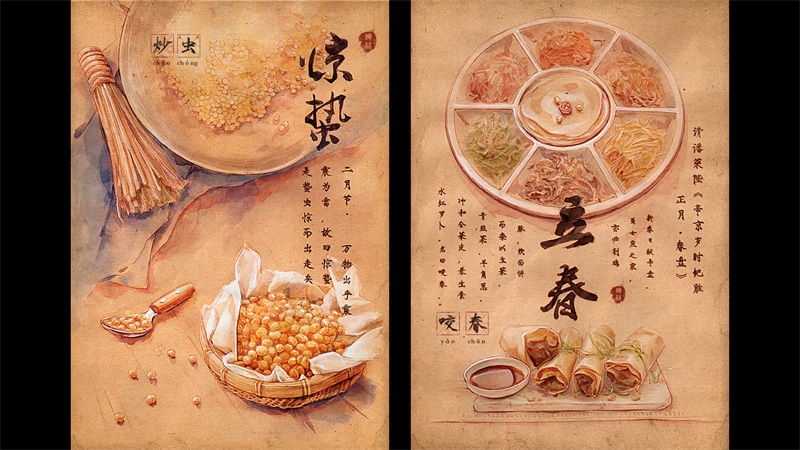 炒虫
chǎo chóng
惊蛰
二月节。万物出乎震
震为雷,故曰惊蛰
是蛰虫惊而出走矣
清潘荣陛《帝京岁时纪胜
正月·春盘》
新春日献辛盘
虽士庶之家
亦必割鸡
豚,炊面饼
而杂以生菜、
青韭菜、羊角葱,
冲和合菜皮,兼生食
水红萝卜,名曰咬春。
立春
咬春
yǎo chūn